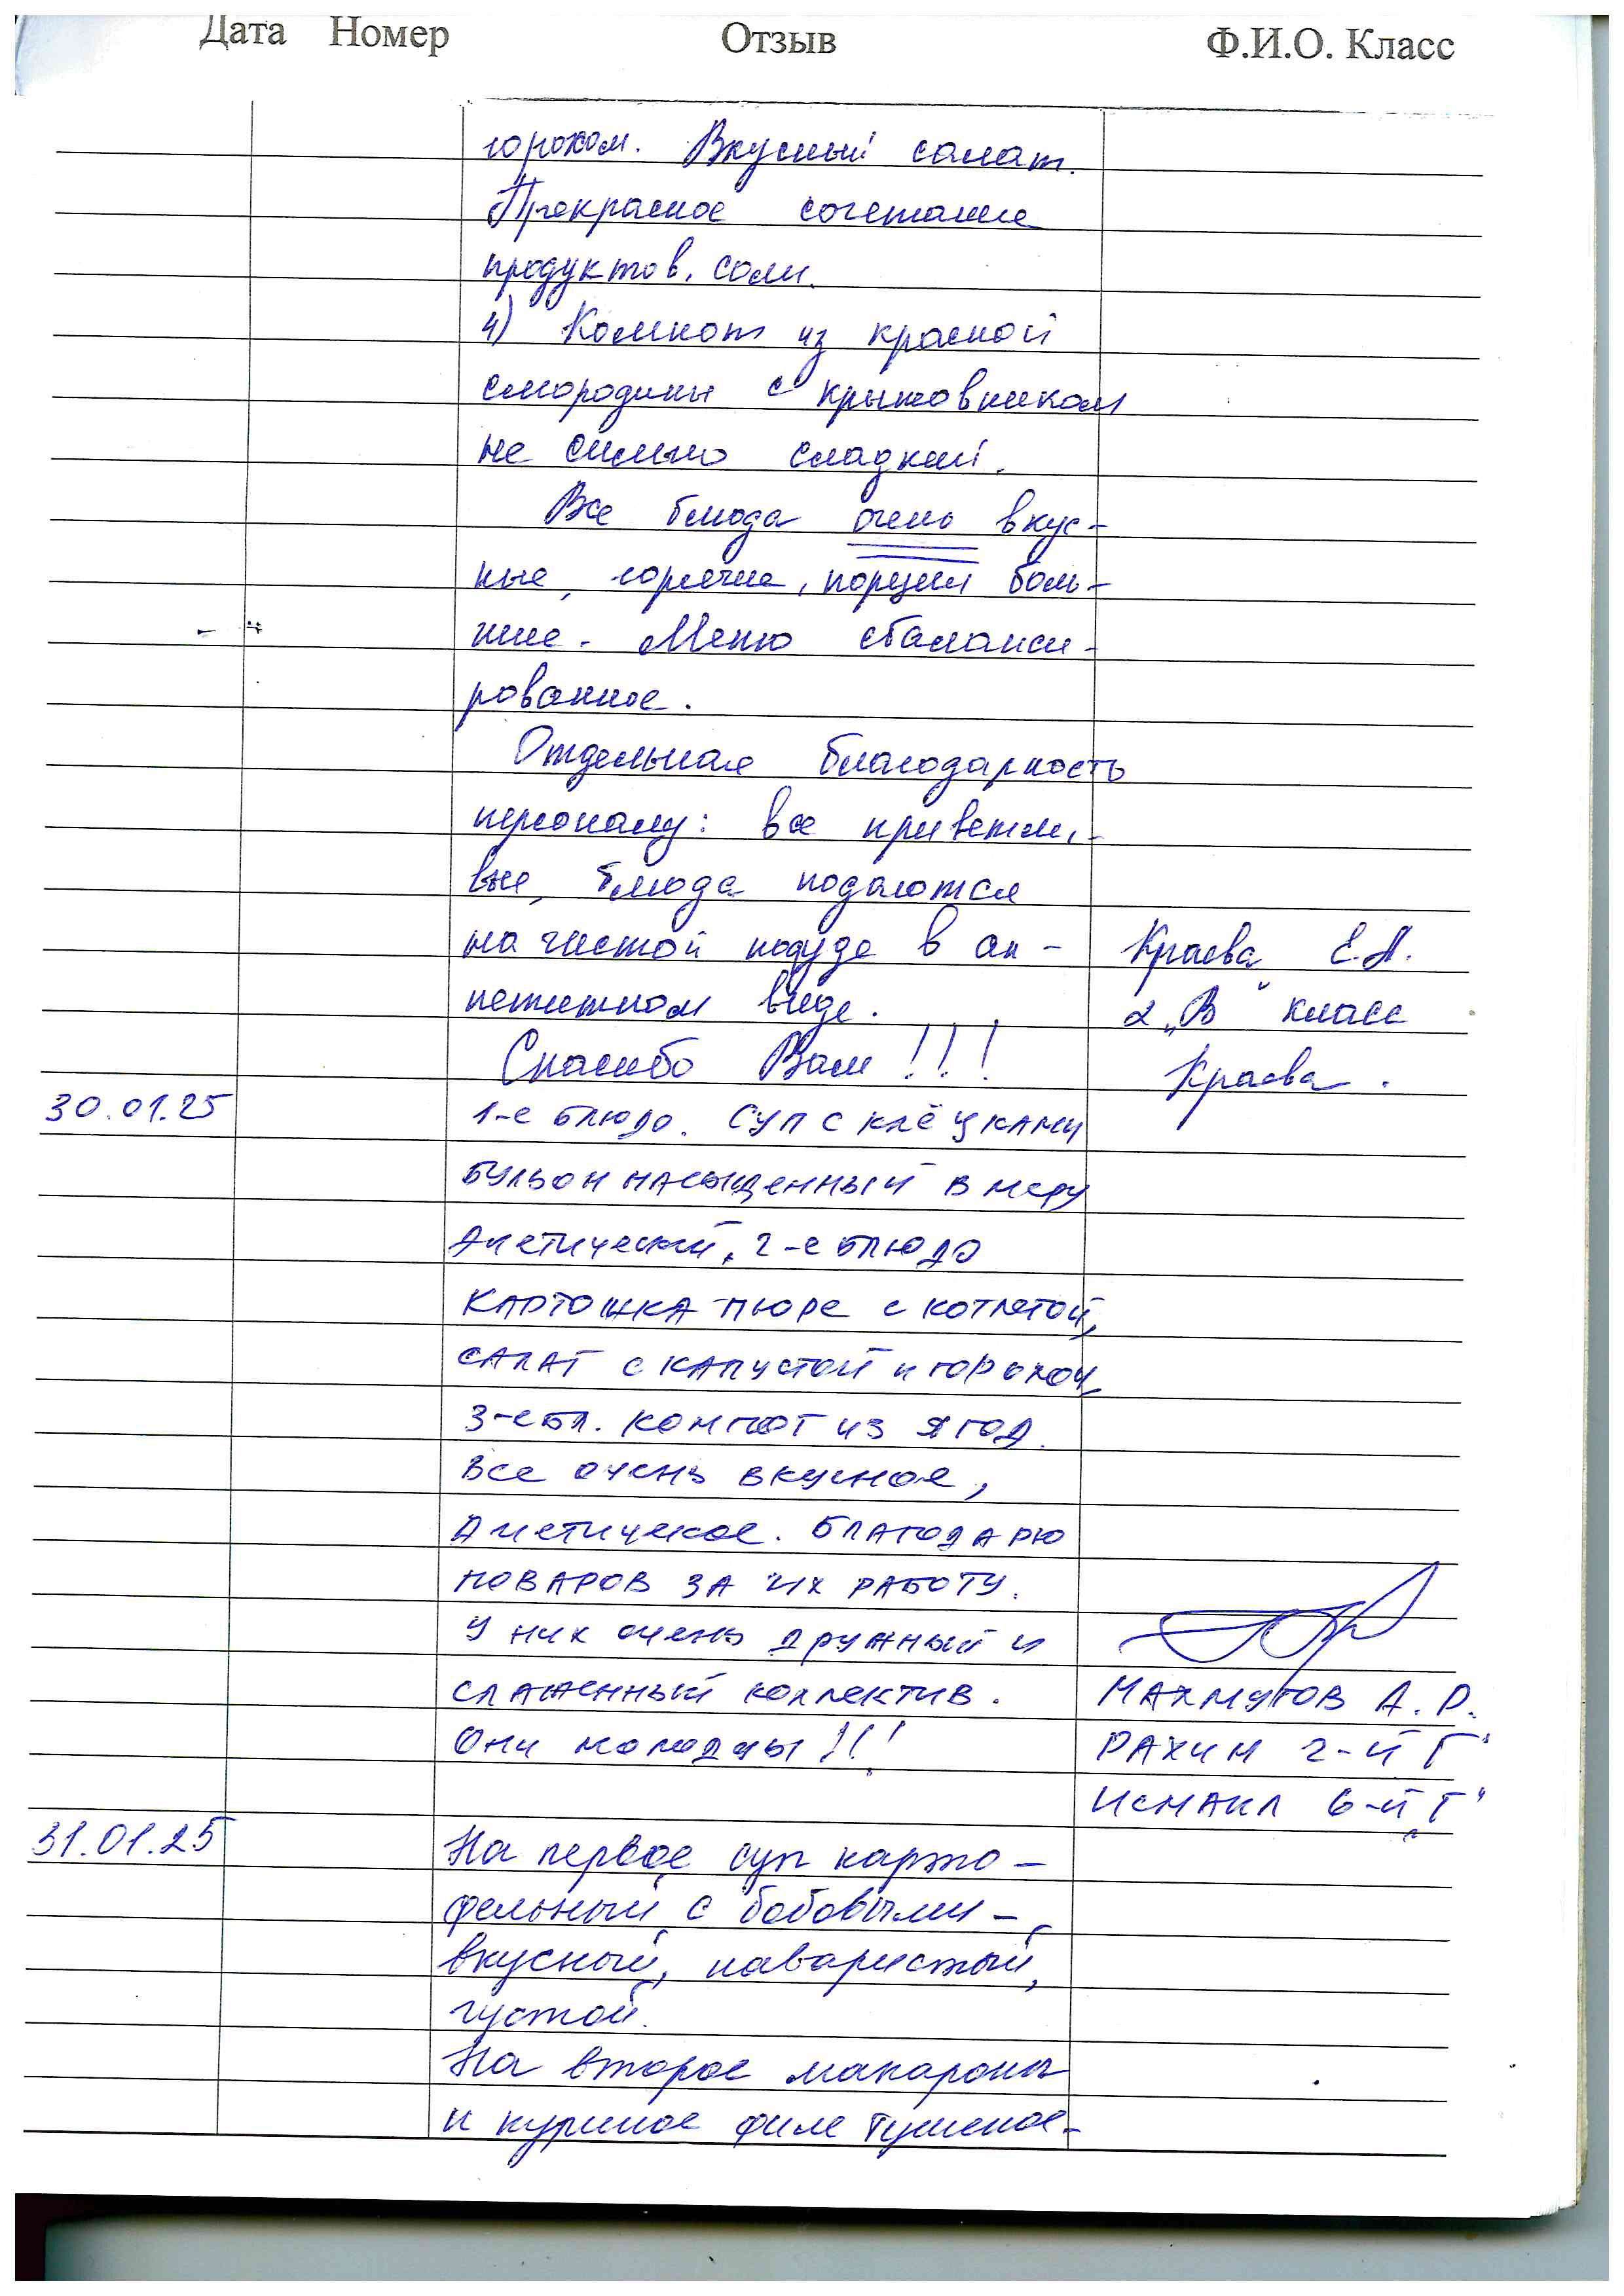 Дата Номер Отзыв Ф.И.О. Класс
горохом. Вкусный салат.
Прекрасное сочетание
продуктов, соли.
4) Компот из красной
смородины с крыжовником
не сильно сладкий.
Все блюда очень вкус-
ные, горячие, порции боль-
шие. Меню сбаланси-
рованное.
Отдельная благодарность
персоналу: все приветли-
вые, блюда подаются
на чистой посуде в ап-
петитном виде.
Краева Е.А.
2 „В" класс
Спасибо Вам!!!
Краева.
30.01.25 1-е блюдо. Суп с клёцками
бульон насыщенный в меру
диетический, 2-е блюдо
картошка пюре с котлетой,
салат с капустой и горохом,
3-е бл. компот из ягод.
Все очень вкусное,
диетическое. Благодарю
поваров за их работу.
У них очень дружный и
слаженный коллектив.
Махмутов А.Р.
Они молодцы!!!
Рахим 2-й Г"
Исмаил 6-й „Г"
31.01.25 На первое суп карто-
фельный с бобовыми -
вкусный, наваристый,
густой.
На второе макароны
и куриное филе тушеное-